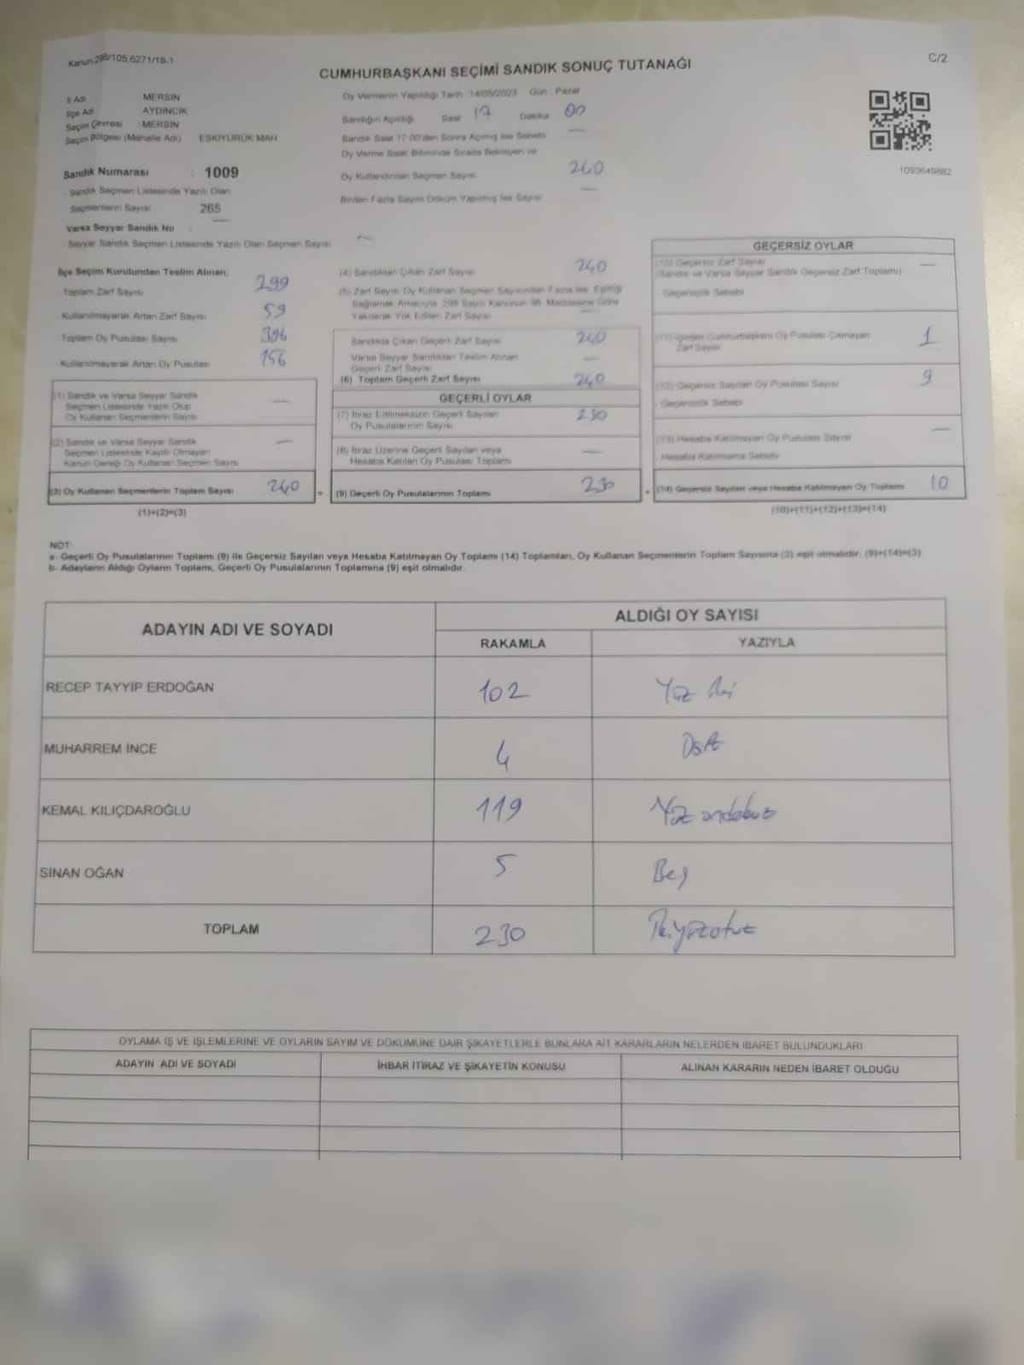 Kanun 298/105,6271/18-1
C/2
CUMHURBAŞKANI SEÇİMİ SANDIK SONUÇ TUTANAĞI
İl Adı MERSİN
İlçe Adı AYDINCIK
Seçim Çevresi : MERSİN
Seçim Bölgesi (Mahalle Adı) ESKİYÜRÜK MAH
Oy Vermenin Yapıldığı Tarih : 14/05/2023 Gün : Pazar
Sandığın Açıldığı Saat 17 Dakika 00
Sandık Saat 17:00'den Sonra Açılmış İse Sebebi —
Oy Verme Saati Bitiminde Sırada Bekleyen ve
Oy Kullandırılan Seçmen Sayısı 240
Birden Fazla Sayım Döküm Yapılmış İse Sayısı —
1093649882
Sandık Numarası : 1009
Sandık Seçmen Listesinde Yazılı Olan
Seçmenlerin Sayısı 265
Varsa Seyyar Sandık No : —
Seyyar Sandık Seçmen Listesinde Yazılı Olan Seçmen Sayısı —
İlçe Seçim Kurulundan Teslim Alınan;
Toplam Zarf Sayısı 299
Kullanılmayarak Artan Zarf Sayısı 59
Toplam Oy Pusulası Sayısı 396
Kullanılmayarak Artan Oy Pusulası 156
(1) Sandık ve Varsa Seyyar Sandık
Seçmen Listesinde Yazılı Olup
Oy Kullanan Seçmenlerin Sayısı —
(2) Sandık ve Varsa Seyyar Sandık
Seçmen Listesinde Kayıtlı Olmayan
Kanun Gereği Oy Kullanan Seçmen Sayısı —
(3) Oy Kullanan Seçmenlerin Toplam Sayısı 240
(1)+(2)=(3)
(4) Sandıktan Çıkan Zarf Sayısı 240
(5) Zarf Sayısı Oy Kullanan Seçmen Sayısından Fazla İse, Eşitliği
Sağlamak Amacıyla 298 Sayılı Kanunun 98. Maddesine Göre
Yakılarak Yok Edilen Zarf Sayısı —
Sandıkta Çıkan Geçerli Zarf Sayısı 240
Varsa Seyyar Sandıktan Teslim Alınan
Geçerli Zarf Sayısı —
(6) Toplam Geçerli Zarf Sayısı 240
GEÇERLİ OYLAR
(7) İtiraz Edilmeksizin Geçerli Sayılan
Oy Pusulalarının Sayısı 230
(8) İtiraz Üzerine Geçerli Sayılan veya
Hesaba Katılan Oy Pusulası Toplamı —
(9) Geçerli Oy Pusulalarının Toplamı 230
GEÇERSİZ OYLAR
(10) Geçersiz Zarf Sayısı
(Sandık ve Varsa Seyyar Sandık Geçersiz Zarf Toplamı) —
Geçersizlik Sebebi
(11) İçinden Cumhurbaşkanı Oy Pusulası Çıkmayan
Zarf Sayısı 1
(12) Geçersiz Sayılan Oy Pusulası Sayısı 9
Geçersizlik Sebebi
(13) Hesaba Katılmayan Oy Pusulası Sayısı —
Hesaba Katılmama Sebebi
(14) Geçersiz Sayılan veya Hesaba Katılmayan Oy Toplamı 10
(10)+(11)+(12)+(13)=(14)
NOT:
a- Geçerli Oy Pusulalarının Toplamı (9) ile Geçersiz Sayılan veya Hesaba Katılmayan Oy Toplamı (14) Toplamları, Oy Kullanan Seçmenlerin Toplam Sayısına (3) eşit olmalıdır. (9)+(14)=(3)
b- Adayların Aldığı Oyların Toplamı, Geçerli Oy Pusulalarının Toplamına (9) eşit olmalıdır.
ADAYIN ADI VE SOYADI ALDIĞI OY SAYISI
RAKAMLA YAZIYLA
RECEP TAYYİP ERDOĞAN 102 Yüz iki
MUHARREM İNCE 4 Dört
KEMAL KILIÇDAROĞLU 119 Yüz ondokuz
SİNAN OĞAN 5 Beş
TOPLAM 230 İkiyüzotuz
OYLAMA İŞ VE İŞLEMLERİNE VE OYLARIN SAYIM VE DÖKÜMÜNE DAİR ŞİKAYETLERLE BUNLARA AİT KARARLARIN NELERDEN İBARET BULUNDUKLARI
ADAYIN ADI VE SOYADI İHBAR İTİRAZ VE ŞİKAYETİN KONUSU ALINAN KARARIN NEDEN İBARET OLDUĞU